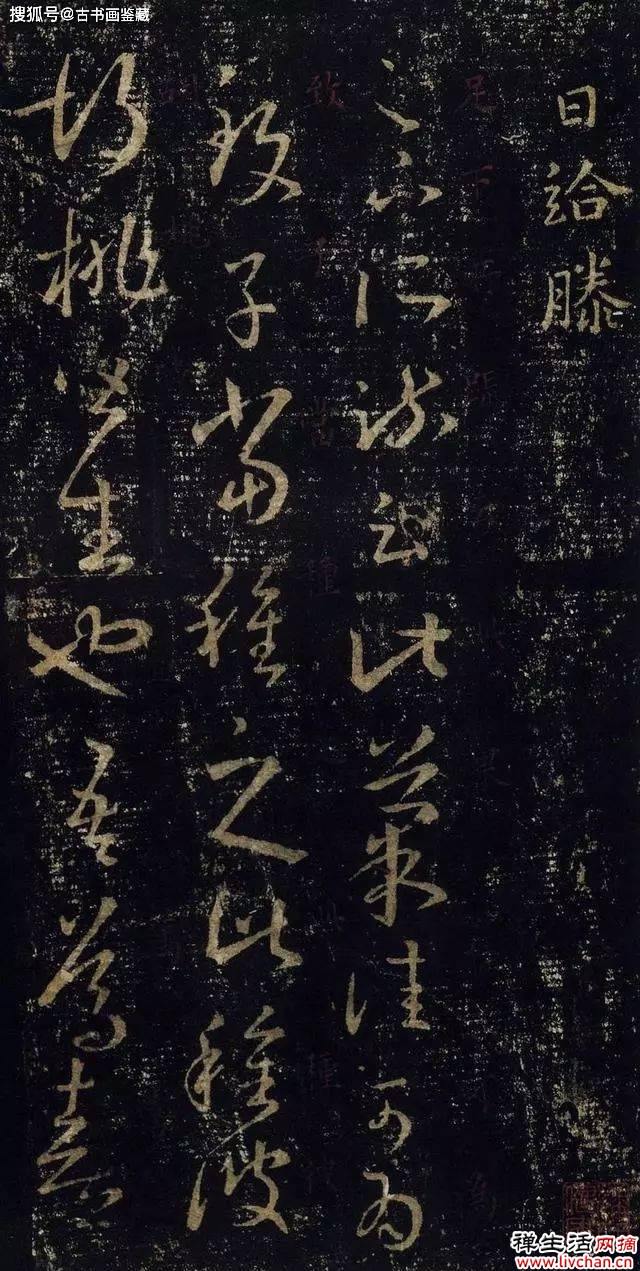 搜狐号@古书画鉴藏
日給滕
足下所疏云此菓佳可為
致子當種之此種彼
胡桃皆生也吾篤喜
禅生活网摘
www.livchan.cn